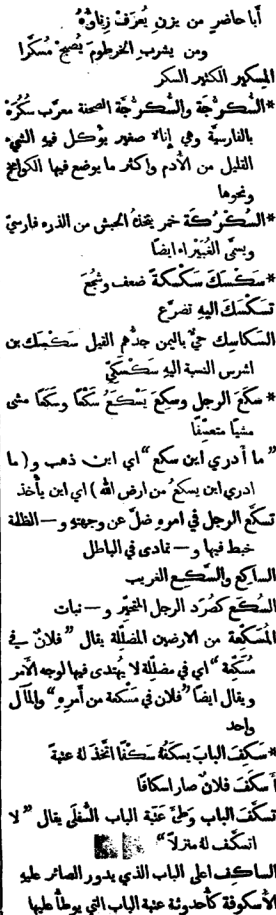 أبا حاضرٍ من يزنِ يُعرَفْ زِناؤهُ
ومن يشربِ الخرطومَ يُصبِحْ مُسكَرا
المِسكير الكثير السكر
*السُكُرُّجَة والسُكُرُّجَّة الصحفة معرَّب سكُرَّه
بالفارسيَّة وهي إناءٌ صغير يوٌكل فيهِ الشيء
القليل من الأدم واكثر ما يوضع فيها الكوامخ
ونحوها
*السُكُرْكَة خمر يتخذهُ الحبش من الذرة فارسيّ
ويسمَّى الغُبَيْراء ايضًا
*سَكْسَكَ سَكْسَكةً ضعف وشجُعَ
تسكسك اليهِ تضرَّع
السَكاسِك حيٌّ باليمن جدُّهم القيل سَكْسك بن
اشرس النسبة اليهِ سَكْسَكيّ
*سكَعَ الرجل وسكِعَ يَسْكَعُ سَكْعًا وسكَعًا مشى
مشيًا متعسِّفًا
” ما أدري اين سكع “ اي اين ذهب و( ما
ادري اين يسكعُ من ارض الله ) اي اين يأخذ
تسكَّع الرجل في امرهِ ضلَّ عن وجهتهِ و — الظلمة
خبط فيها و — تمادى في الباطل
الساكِع والسَكِع الغريب
السُكَع كصُرَد الرجل المتحيِّر و — نبات
المُسَكِّعة من الارضين المضلِّلة يقال ” فلانٌ في
مُسَكِّعة “ اي في مضلِّلة لا يُهتدى فيها لوجه الأمر
ويقال ايضًا ” فلان في مَسْكعة من أمرهِ “ والمآل
واحد
*سَكَفَ البابَ يسكُفُهُ سَكْفًا اتَّخذ لهُ عتبةً
أَسكَفَ فلانٌ صار اسكافًا
تسكَّف الباب وَطِئَ عَتَبة الباب السُفلَى يقال ” لا
اتسكَّف لهُ منزلًا “
الساكف اعلى الباب الذي يدور الصائر عليهِ
الأُسكوفة كأُحدوثة عتبة الباب التي يوطأ عليها